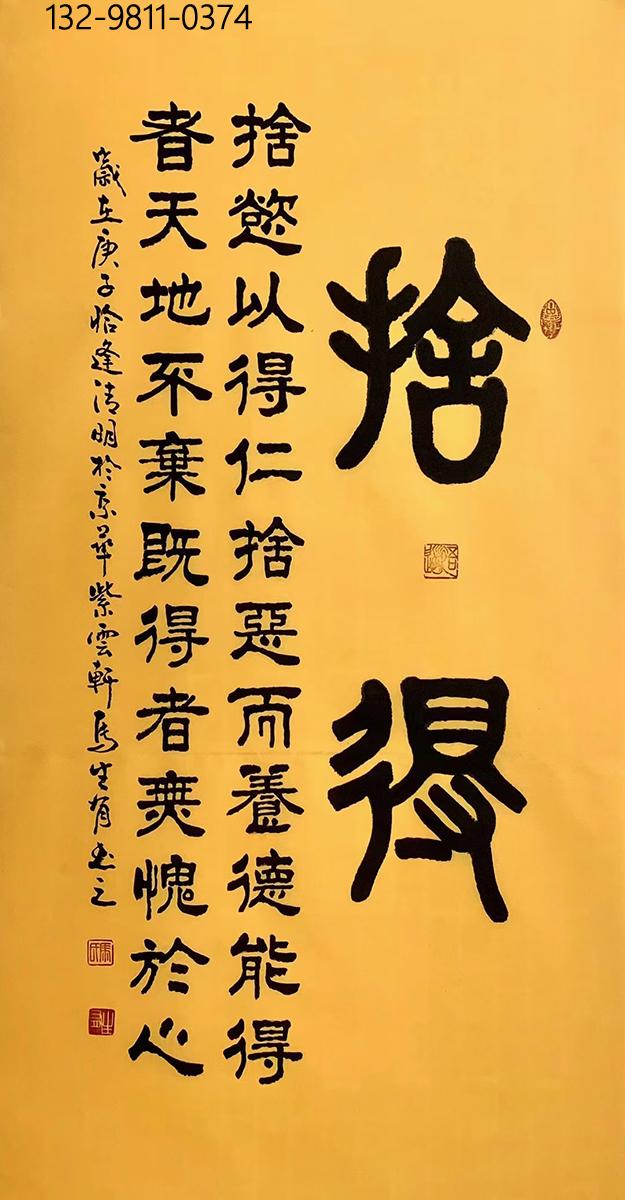 132-9811-0374
捨得
捨慾以得仁捨惡而養德能得
者天地不棄既得者無愧於心
歲在庚子恰逢清明於京華紫雲軒馬生有書之